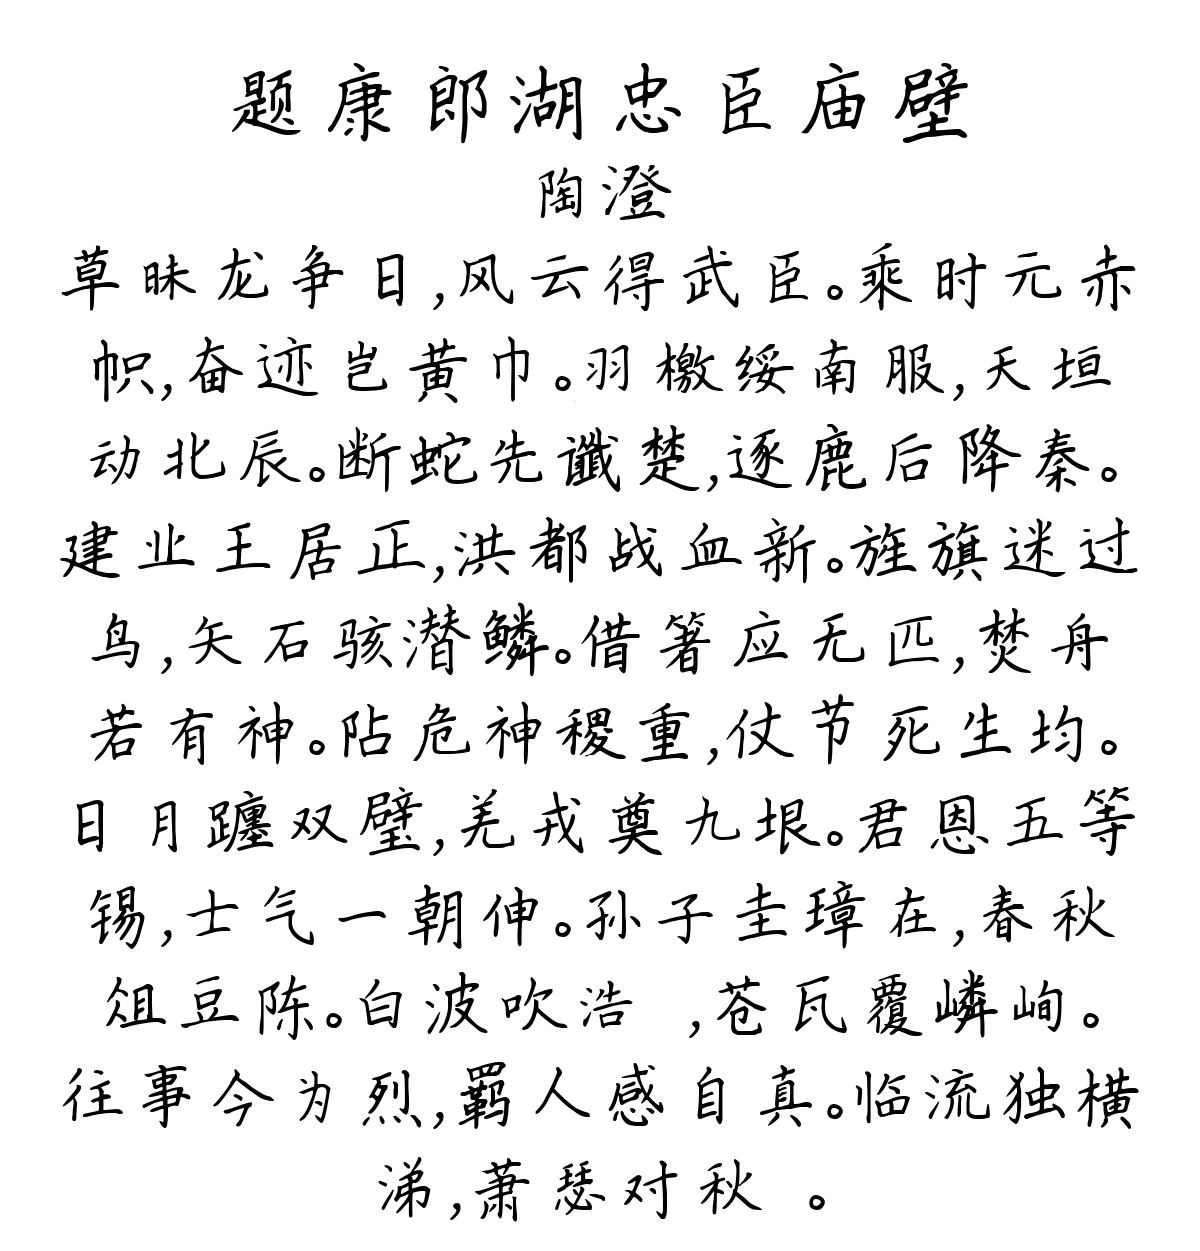 题康郎湖忠臣庙壁
陶澄
草昧龙争日,风云得武臣。乘时元赤
帜,奋迹岂黄巾。羽檄绥南服,天垣
动北辰。断蛇先谶楚,逐鹿后降秦。
建业王居正,洪都战血新。旌旗迷过
鸟,矢石骇潜鳞。借箸应无匹,焚舟
若有神。阽危神稷重,仗节死生均。
日月躔双璧,羌戎奠九垠。君恩五等
锡,士气一朝伸。孙子圭璋在,春秋
俎豆陈。白波吹浩 ,苍瓦覆嶙峋。
往事今为烈,羁人感自真。临流独横
涕,萧瑟对秋 。